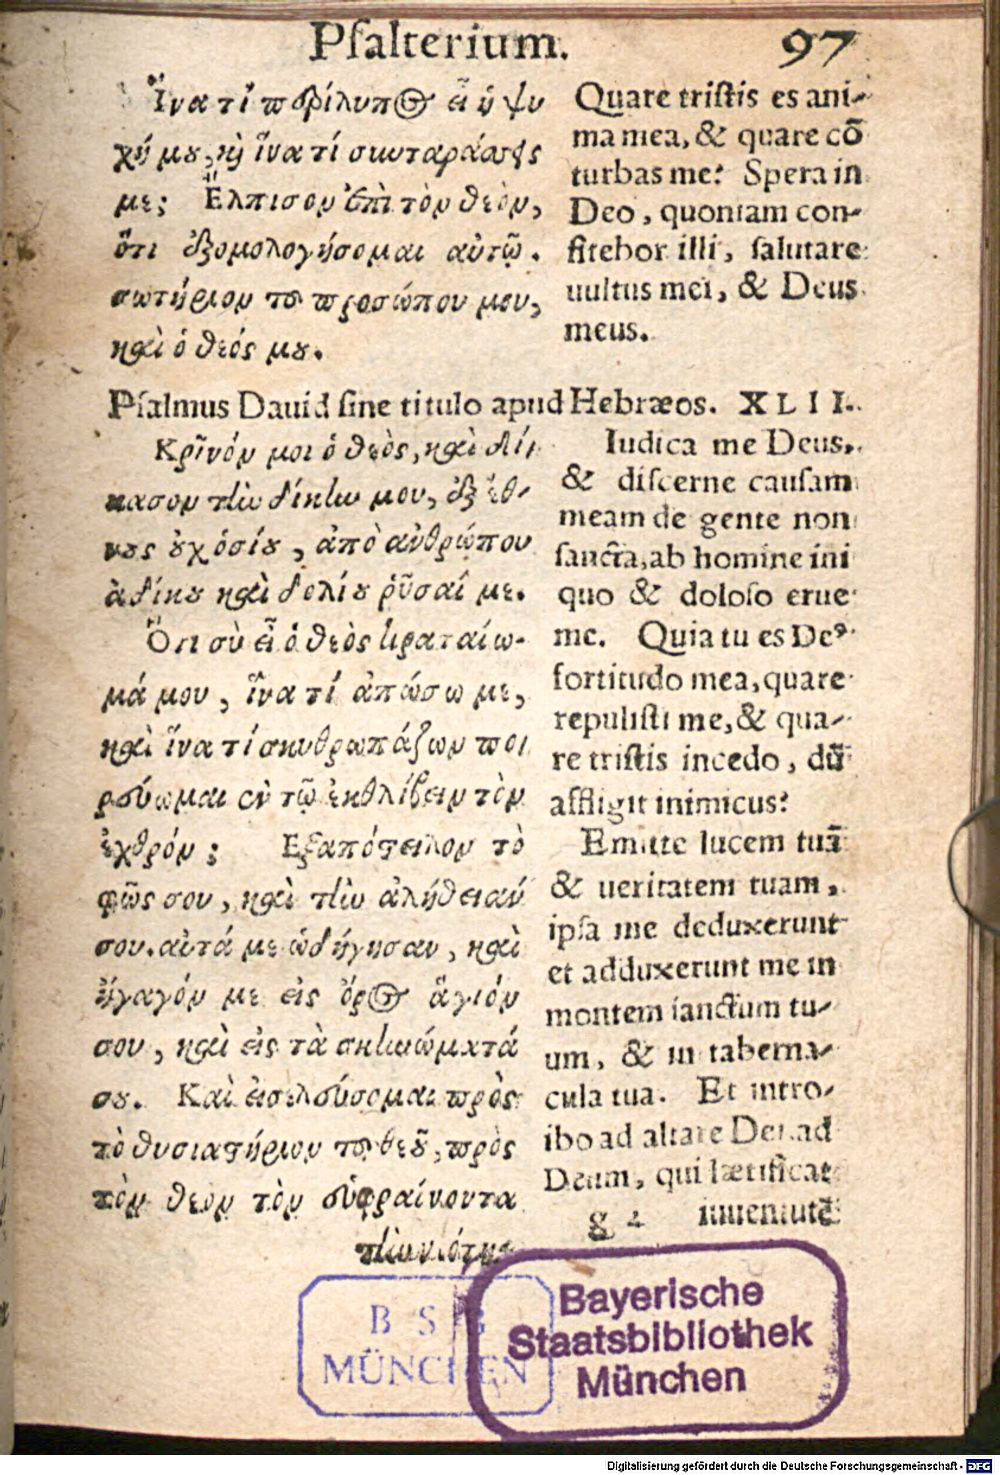 Psalterium. 97
Ἵνα τί περίλυπος εἶ ἡ ψυ
χή μου, καὶ ἵνα τί συνταράσσεις
με; Ἔλπισον ἐπὶ τὸν θεὸν,
ὅτι ἐξομολογήσομαι αὐτῷ.
σωτήριον τοῦ προσώπου μου,
καὶ ὁ θεός μου.
Quare tristis es ani-
ma mea, & quare cō
turbas me? Spera in
Deo, quoniam con-
fitebor illi, salutare
uultus mei, & Deus
meus.
Psalmus Dauid sine titulo apud Hebræos. XLII.
Κρῖνόν μοι ὁ θεὸς, καὶ δί
κασον τὴν δίκην μου, ἐξ ἔθ-
νους οὐχ ὁσίου, ἀπὸ ἀνθρώπου
ἀδίκου καὶ δολίου ῥῦσαί με.
Ὅτι σὺ εἶ ὁ θεὸς κραταίω-
μά μου, ἵνα τί ἀπώσω με,
καὶ ἵνα τί σκυθρωπάζων πο
ρεύωμαι ἐν τῷ ἐκθλίβειν τὸν
ἐχθρόν; Ἐξαπόστειλον τὸ
φῶς σου, καὶ τὴν ἀλήθειάν
σου. αὐτά με ὡδήγησαν, καὶ
ἤγαγόν με εἰς ὄρος ἅγιόν
σου, καὶ εἰς τὰ σκηνώματά
σου. Καὶ εἰσελεύσομαι πρὸς
τὸ θυσιαστήριον τοῦ θεοῦ, πρὸς
τὸν θεὸν τὸν εὐφραίνοντα
Iudica me Deus,
& discerne causam
meam de gente non
sancta, ab homine ini
quo & doloso erue
me. Quia tu es Deꝰ
fortitudo mea, quare
repulisti me, & qua-
re tristis incedo, dū
affligit inimicus?
Emitte lucem tuā
& ueritatem tuam,
ipsa me deduxerunt
et adduxerunt me in
montem sanctum tu-
um, & in taberna-
cula tua. Et intro-
ibo ad altare Dei. ad
Deum, qui lætificat
g 2 iuuentutē
τὴν νιότητ
BSB
MÜNCHEN
Bayerische
Staatsbibliothek
München
Digitalisierung gefördert durch die Deutsche Forschungsgemeinschaft - DFG